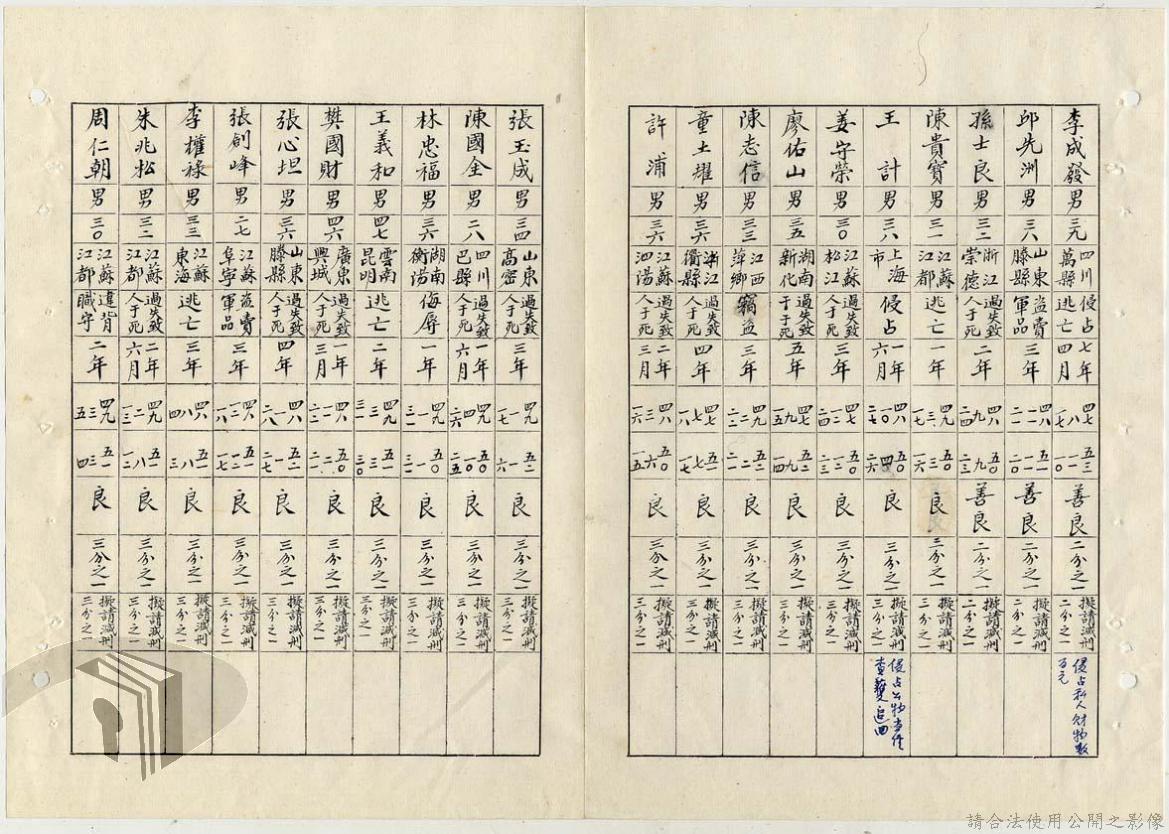 李成發 男 三九 四川萬縣 侵占逃亡 七年四月 四七 八 一七 善良 二分之一 擬請減刑二分之一 侵占私人財物數百元
邱先洲 男 三八 山東滕縣 盜賣軍品 三年 善良 二分之一 擬請減刑二分之一
孫士良 男 三二 浙江崇德 過失致人于死 二年 四八 九 二四 五〇 九 二三 善良 二分之一 擬請減刑二分之一
陳貴寶 男 三一 江蘇江都 逃亡 一年 四九 三 一七 五〇 三 一六 良 三分之一 擬請減刑三分之一
王計 男 三八 上海市 侵占 一年六月 四八 一〇 二七 五〇 四 二六 良 三分之一 擬請減刑三分之一 侵占公物
姜守榮 男 三〇 江蘇松江 過失致人于死 三年 四七 一二 二四 五〇 一二 二三 良 三分之一 擬請減刑三分之一
廖佑山 男 三五 湖南新化 過失致于死 五年 四七 九 一五 五二 九 一四 良 三分之一 擬請減刑三分之一
陳志信 男 三三 江西萍鄉 竊盜 三年 四九 二 二二 五二 二 二一 良 三分之一 擬請減刑三分之一
童土耀 男 三六 浙江衢縣 過失致人于死 四年 四七 七 一八 五一 七 一七 良 三分之一 擬請減刑三分之一
許浦 男 三六 江蘇泗陽 過失致人于死 二年三月 四八 三 一六 五〇 六 一五 良 三分之一 擬請減刑三分之一
張玉成 男 三四 山東高密 過失致人于死 三年 四九 一 七 五二 一 六 良 三分之一 擬請減刑三分之一
陳國金 男 二八 四川巴縣 過失致人于死 一年六月 四九 四 二六 五〇 一〇 二五 良 三分之一 擬請減刑三分之一
林忠福 男 三六 湖南衡陽 侮辱 一年 良 三分之一 擬請減刑三分之一
王義和 男 四七 雲南昆明 逃亡 二年 四九 三 三一 五一 三 三〇 良 三分之一 擬請減刑三分之一
樊國財 男 四六 廣東興城 過失致人于死 一年三月 良 三分之一 擬請減刑三分之一
張心坦 男 三六 山東滕縣 過失致人于死 四年 四八 一 二八 五二 一 二七 良 三分之一 擬請減刑三分之一
張創峰 男 二七 江蘇阜寧 盜賣軍品 三年 四八 一二 一八 五一 一二 一七 良 三分之一 擬請減刑三分之一
李權祿 男 三三 江蘇東海 逃亡 三年 四八 八 四 五一 八 三 良 三分之一 擬請減刑三分之一
朱兆松 男 三二 江蘇江都 過失致人于死 二年六月 四九 二 一三 五一 八 一二 良 三分之一 擬請減刑三分之一
周仁朝 男 三〇 江蘇江都 違背職守 二年 四九 三 五 五一 三 四 良 三分之一 擬請減刑三分之一
請合法使用公開之影像